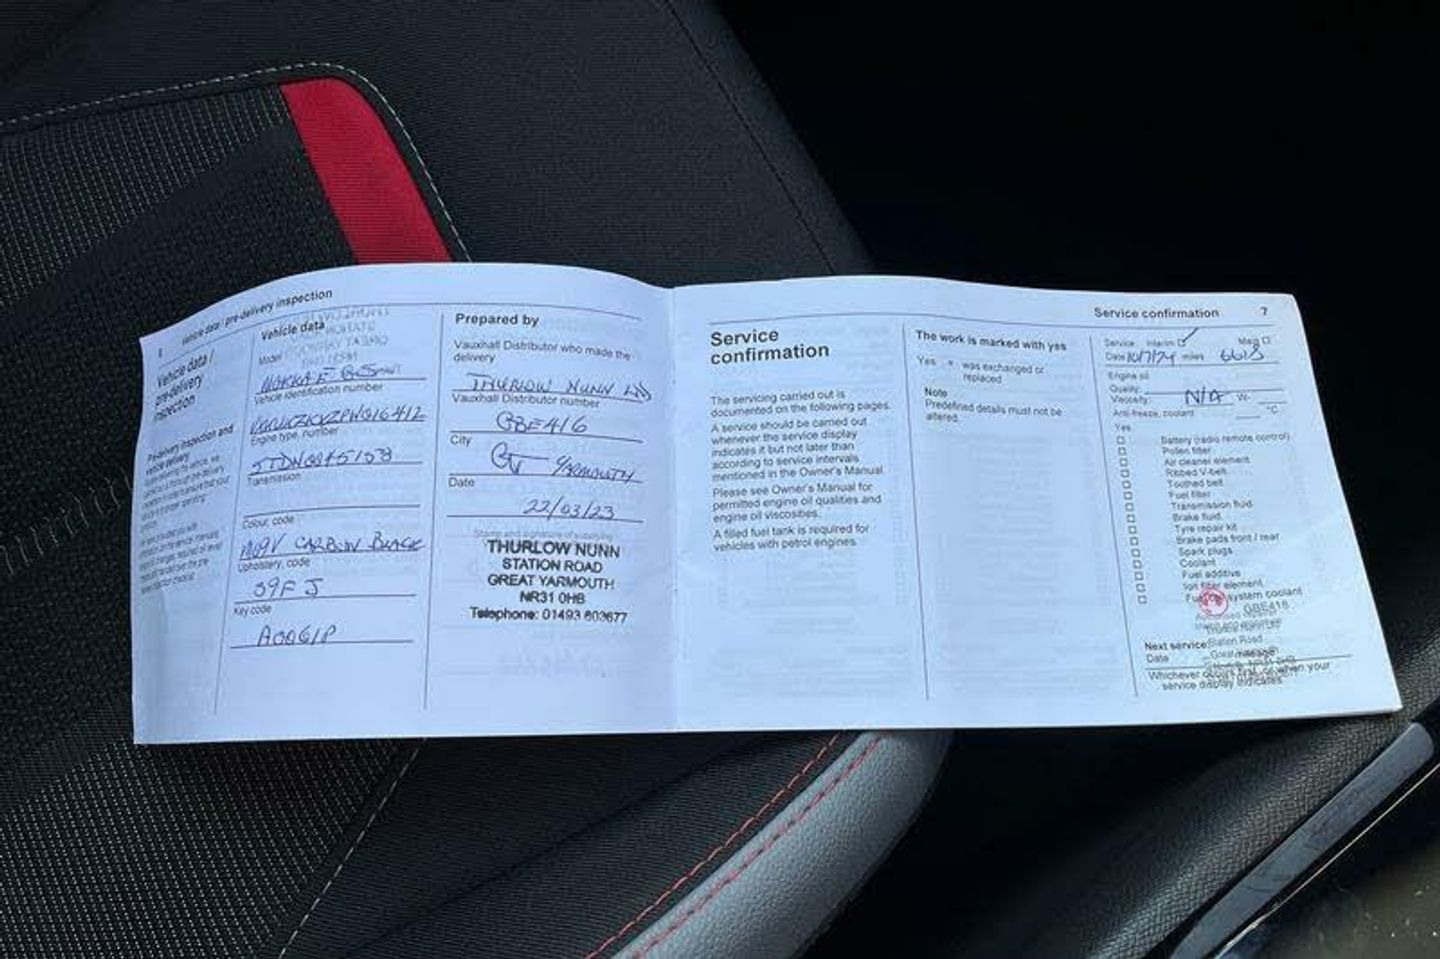 Vehicle data / pre-delivery inspection
Vehicle data /
pre-delivery
inspection
Pre-delivery inspection and
vehicle delivery
Vehicle data
Model
MOKKA E
Vehicle identification number
Engine type, number
Transmission
Colour, code
CARBON BLACK
Upholstery, code
39FJ
Key code
A0061P
Prepared by
Vauxhall Distributor who made the
delivery
THURLOW NUNN
Vauxhall Distributor number
GBE416
City
GT YARMOUTH
Date
22/03/23
THURLOW NUNN
STATION ROAD
GREAT YARMOUTH
NR31 0HB
Telephone: 01493 603677
Service confirmation 7
Service
confirmation
The servicing carried out is
documented on the following pages.
A service should be carried out
whenever the service display
indicates it but not later than
according to service intervals
mentioned in the Owner's Manual
Please see Owner's Manual for
permitted engine oil qualities and
engine oil viscosities.
A filled fuel tank is required for
vehicles with petrol engines.
The work is marked with yes
Yes = was exchanged or
replaced
Note
Predefined details must not be
altered.
Service Interim Main
Date 10/7/24 miles
Engine oil
Quality
Viscosity N/A W-
Anti-freeze, coolant °C
Yes
Battery (radio remote control)
Pollen filter
Air cleaner element
Ribbed V-belt
Toothed belt
Fuel filter
Transmission fluid
Brake fluid
Tyre repair kit
Brake pads front / rear
Spark plugs
Coolant
Fuel additive
Ion filter element
system coolant
GBE416
Station Road
Next service
Date mileage
Whichever occurs first, or when your
service display indicates